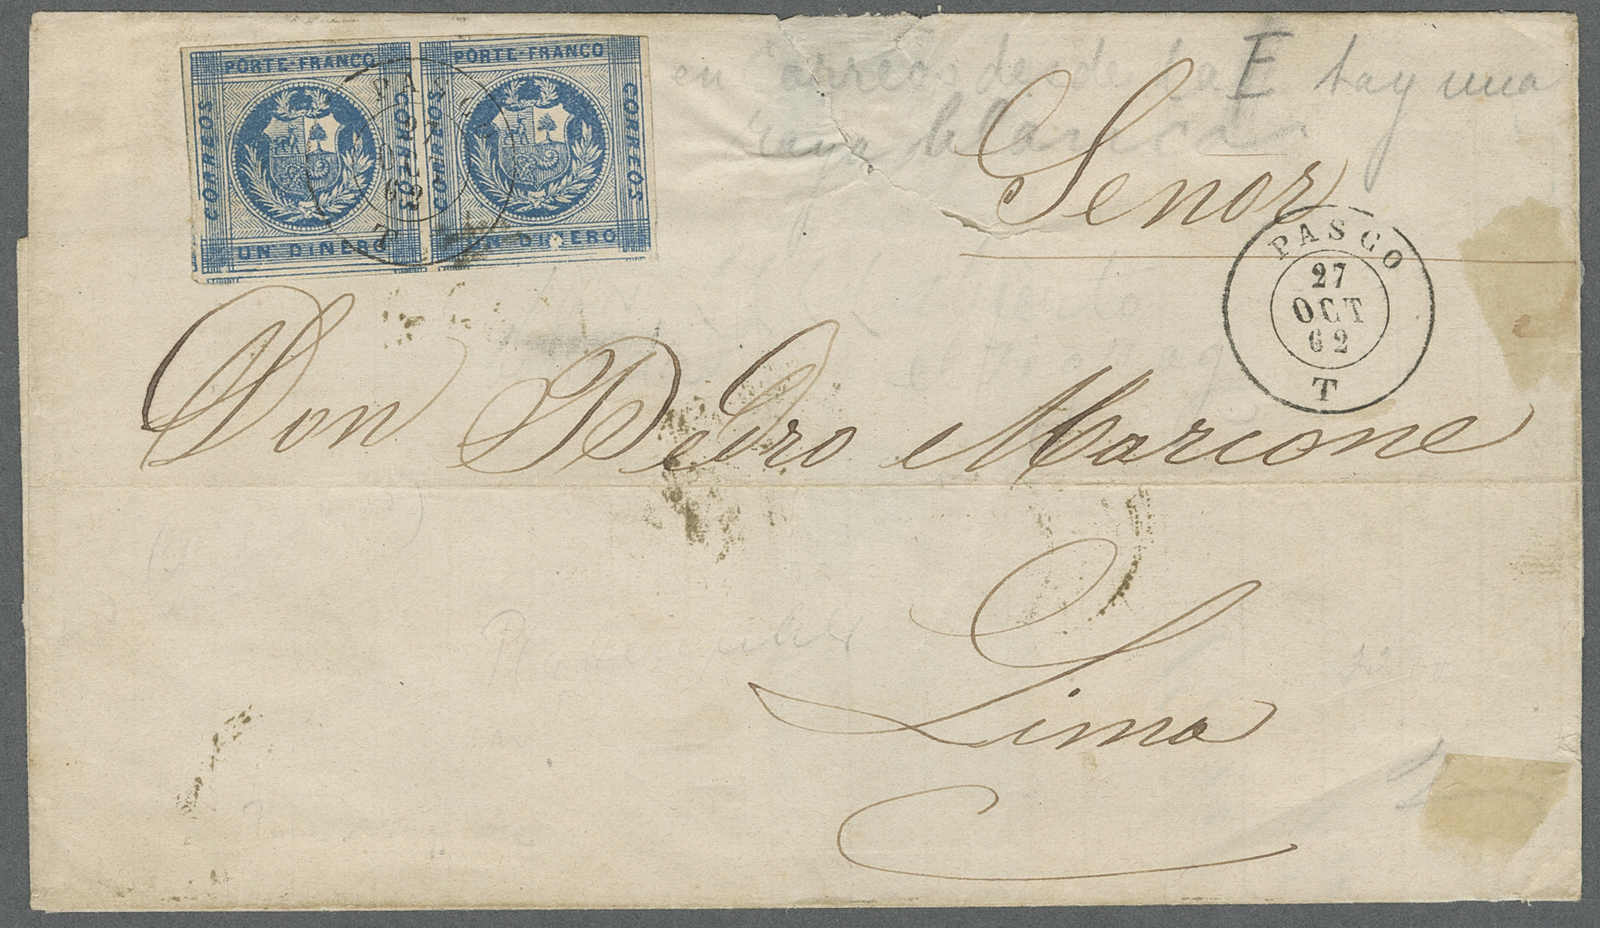 PORTE-FRANCO PORTE-FRANCO
CORREOS CORREOS CORREOS CORREOS
UN DINERO UN DINERO
PASCO
OCT
62
T
en correos desde la E hay una
raya blanca
Señor
PASCO
27
OCT
62
T
Don Pedro Marcone
Lima